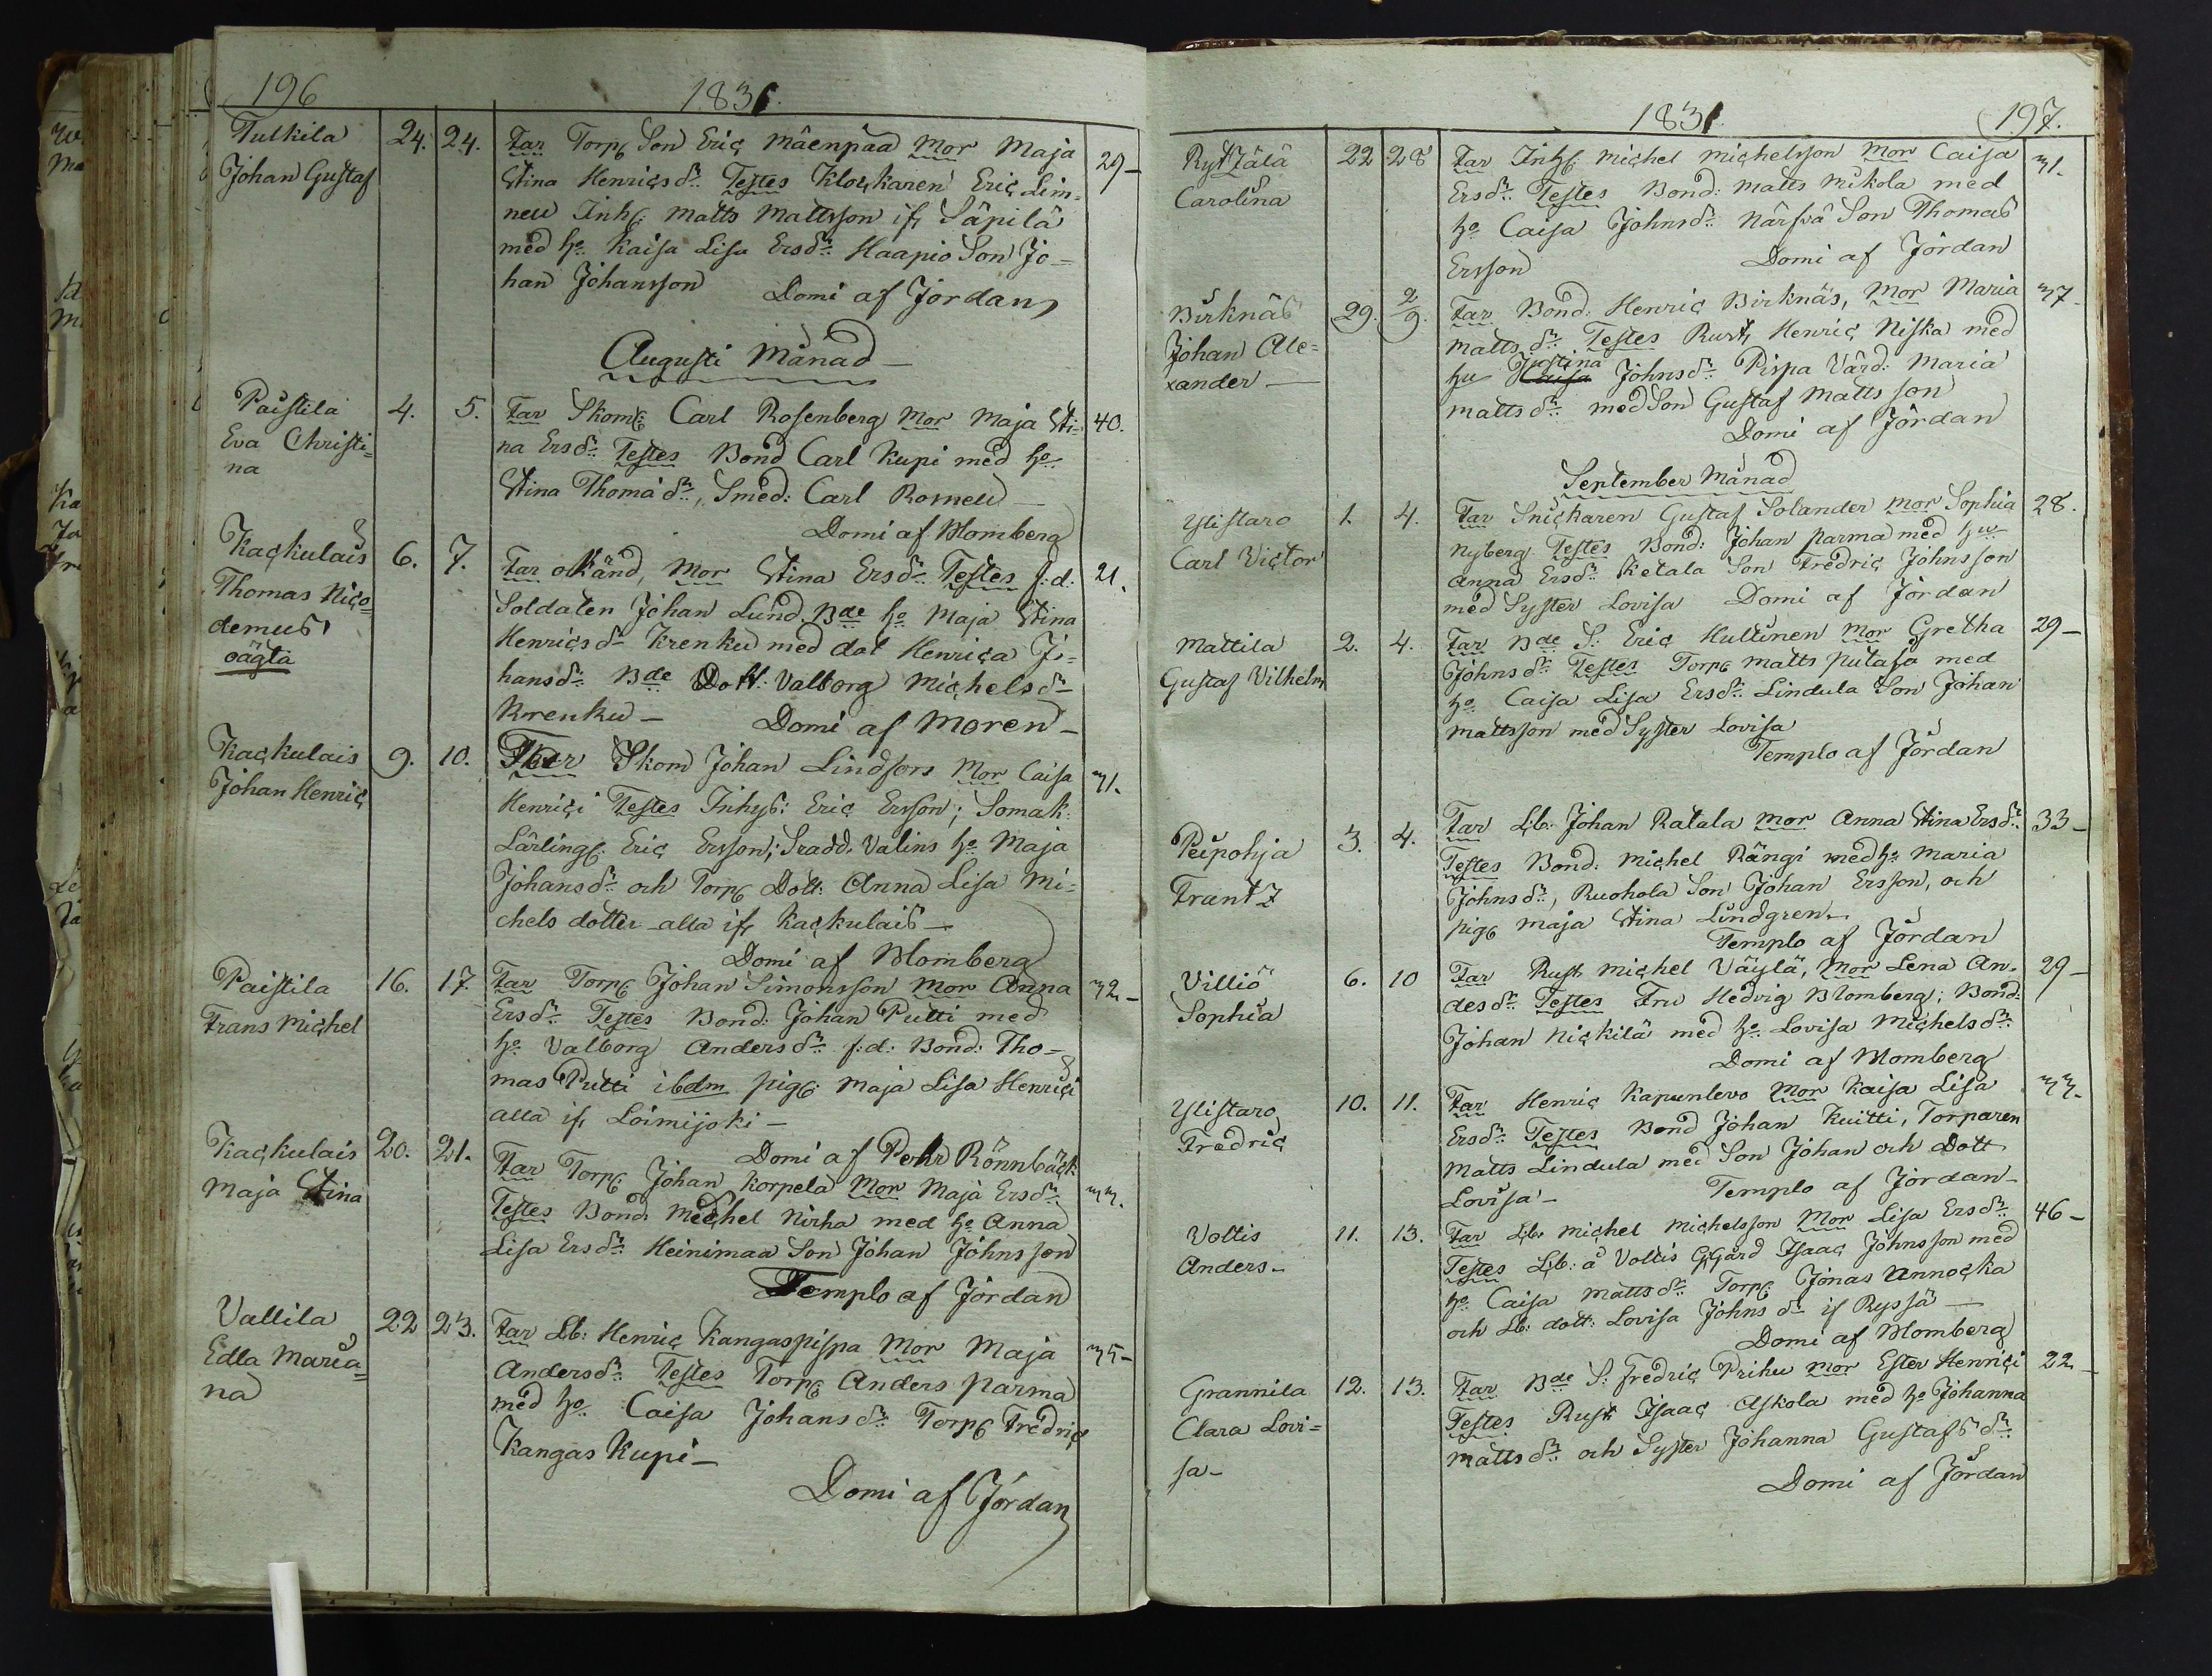 196
1831.
Tulkila 24. 24. Far Torp Son Eric Mäenpää Mor Maja 29-
Johan Gustaf Stina Henricsdr Testes Klockaren Eric Lim-
nell Inh: Matts Mattsson if. Säpilä
med ho Kaisa Lisa Ersdr. Haapio Son Jo=
han Johansson Domi af Jordan
Augusti Månad
Paistila 4. 5. Far Skom: Carl Rosenberg Mor Maja Sti= 40.
Eva Christi= na Ersdr. Testes Bond Carl Kupi med ho
na Stina Thomadr., Smed: Carl Romell
Domi af Blomberg
Kackulais 6. 7. Far okänd, Mor Stina Ersdr. Testes f:d: 21.
Thomas Nico= Soldaten Johan Lund. Bde ho Maja Stina
demus Henricsdr Krenku med dot Henrica Jo=
oägta hansdr. Bde Dott: Valborg Michelsdr
Krenku - Domi af Moren -
Kackulais 9. 10. Far Skom Johan Lindfors Mor Caisa 31.
Johan Henric Henrici Testes Inhys: Eric Ersson; Somak.
Lärling: Eric Ersson; Sradd. Valins ho Maja
Johansdr. och Torp Dott: Anna Lisa Mi=
chels dotter alla if. Kackulais -
Domi af Blomberg
Paistila 16. 17. Far Torp Johan Simonsson Mor Anna 32-
Frans Michel Ersdr. Testes Bond: Johan Putti med
ho Valborg Andersdr. f:d: Bond: Tho=
mas Putti ibdm pig: Maja Lisa Henrici
alla if. Loimijoki -
Domi af Pehr Rönnbäck
Kackulais 20. 21. Far Torp Johan Korpela Mor Maja Ersdr. 33.
Maja Stina Testes Bond: Michel Nirha med ho Anna
Lisa Ersdr. Heinimaa Son Johan Johnsson
Templo af Jordan
Vallila 22 23. Far Lb: Henric Kangaspispa Mor Maja 35-
Edla Maria= Andersdr. Testes Torp Anders Parma
na med ho Caisa Johansdr. Torp Fredric
Kangas Kupi -
Domi af Jordan
1831
197.
Ryttälä 22 28 Far Inh: Michel Michelsson Mor Caisa 31.
Carolina Ersdr. Testes Bond: Matts Mikola med
ho Caisa Johnsdr. Närfvä Son Thomas
Ersson Domi af Jordan
Birknäs 29. 2/9. Far Bond: Henric Birknäs, Mor Maria 37-
Johan Ale= Mattsdr. Testes Rust. Henric Niska med
xander - hu Justina Johnsdr. Pispa Värd: Maria
Mattsdr. med Son Gustaf Mattsson
Domi af Jordan
September Månad
Ylistaro 1. 4. Far Snickaren Gustaf Solander Mor Sophia 28.
Carl Victor Nyberg Testes Bond: Johan Parma med hu
Anna Ersdr. Ketala Son Fredric Johnsson
med Syster Lovisa Domi af Jordan
Mattila 2. 4. Far Bde S: Eric Hultinen Mor Gretha 29-
Gustaf Vilhelm Johnsdr. Testes Torp Matts Putaja med
ho Caisa Lisa Ersdr. Lindula Son Johan
Mattsson med Syster Lovisa
Templo af Jordan
Peipohja 3. 4. Far Lb: Johan Ratala Mor Anna Stina Ersdr. 33-
Frantz Testes Bond: Michel Rängi med ho Maria
Johnsdr., Ruohola Son Johan Ersson, och
pig Maja Stina Lindgren.
Templo af Jordan
Villiö 6. 10 Far Rust. Michel Väylä, Mor Lena An- 29-
Sophia desdr. Testes Fru Hedvig Blomberg; Bond:
Johan Nickilä med ho Lovisa Michelsdr.
Domi af Blomberg
Ylistaro 10. 11. Far Henric Kapunlevo Mor Kaisa Lisa 33-
Fredric Ersdr. Testes Bond Johan Kuitti, Torparen
Matts Lindula med Son Johan och Dott
Lovisa - Templo af Jordan -
Voltis 11. 13. Far Lb: Michel Michelsson Mor Lisa Ersdr. 46-
Anders - Testes Lb: å Voltis Ggård Isaac Johnsson med
ho Caisa Mattsdr. Torp Jonas Annocka
och Lb: dott: Lovisa Johnsdr if Ryssä -
Domi af Blomberg
Grannila 12. 13. Far Bde S: Fredric Prihu Mor Ester Henrici 22-
Clara Lovi= Testes Rust Isaac Askola med ho Johanna
sa - Mattsdr. och Syster Johanna Gustafsdr.
Domi af Jordan